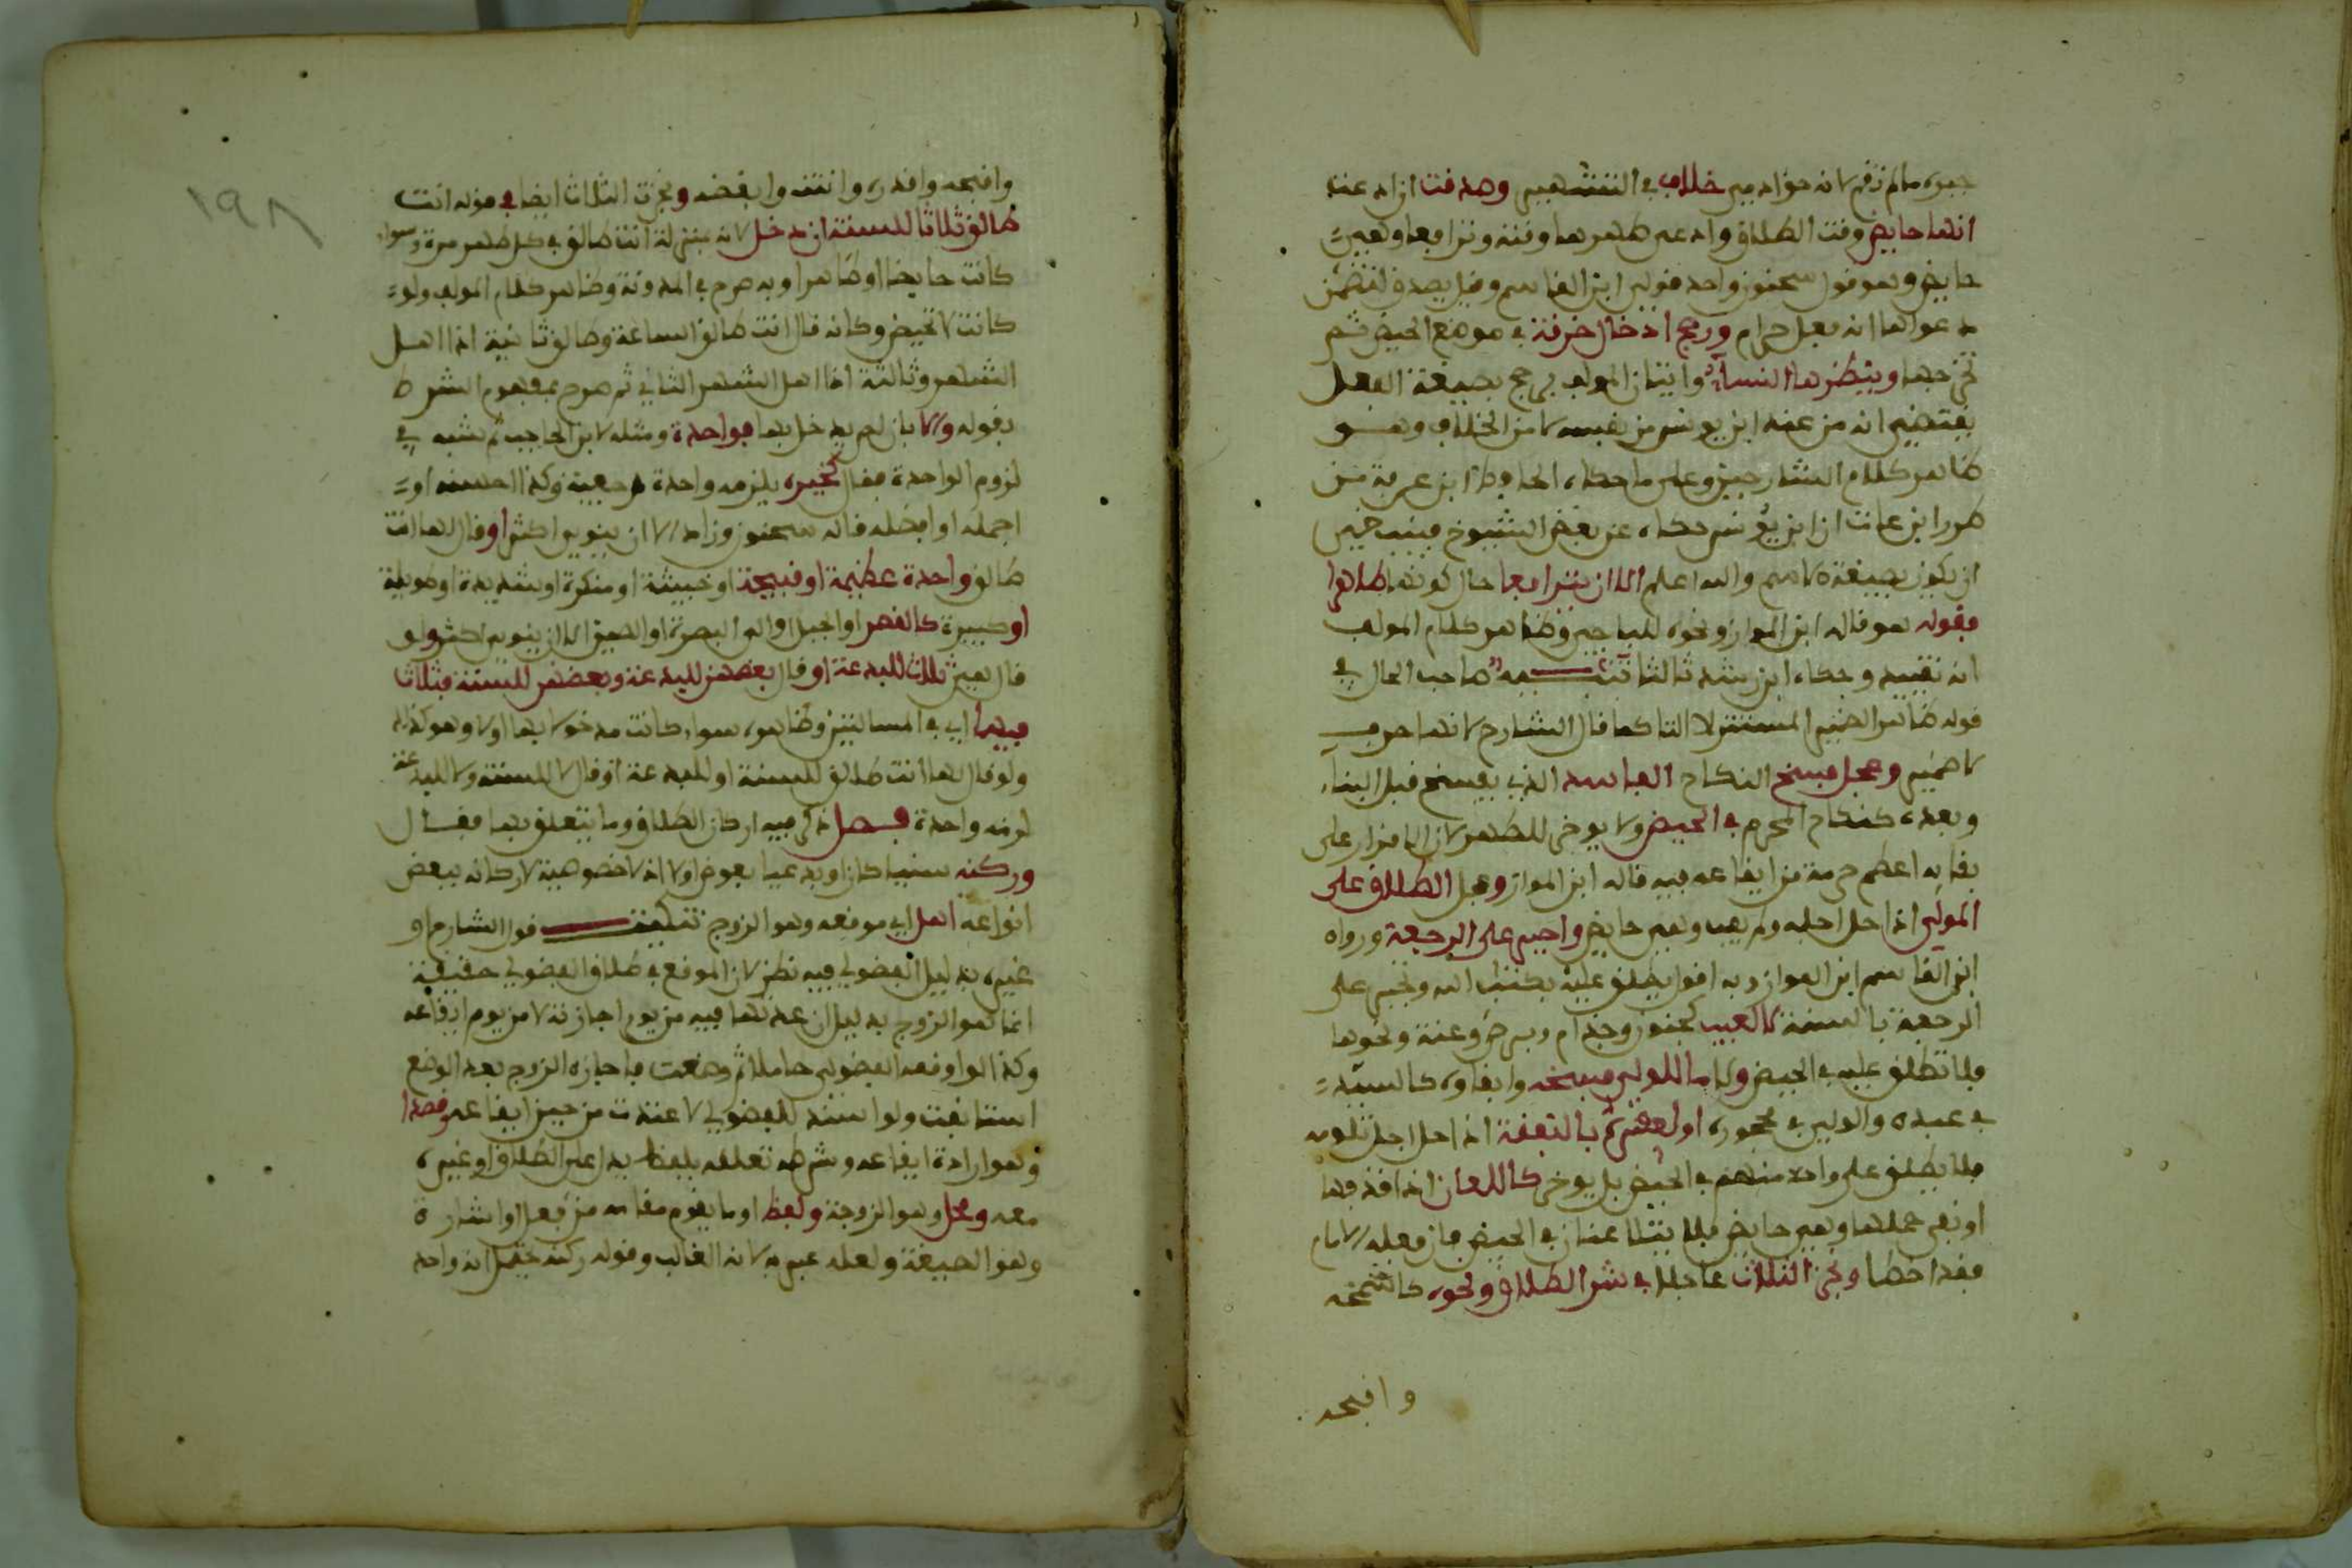 جبره ما لم ترقم لانه حق ادمي خلاف في التشهير وصدقت ان ادعت
انها حايض وقت الطلاق وادعى طهرها وقته وترافعا وهي
حايض وهو قول سحنون واحد قولي ابن القاسم وقيل يصدق لتضمن
دعواها انه فعل حرام ورجح ادخال خرقة في موضع الحيض ثم
تخرجها وينظرها النساء واتيان المولف برجح بصيغة الفعل
يقتضي انه من عند ابن يونس من نفسه لا من الخلاف وهو
ظاهر كلام الشارحين وعلى ما حكاه الحافظ ابن عرفة من
طرر ابن عات ان ابن يونس حكاه عن بعض الشيوخ فينبغي
ان يكون بصيغة الاسم والله اعلم الا ان يترافعا حال كونها طاهرا
فقوله هو قال ابن المواز ونحوه للباجي وظاهر كلام المولف
انه تقييد وحكاه ابن رشد ثالثا تنبيه صاحب الحال في
قوله طاهرا الضمير المستتر لا التا كما قال الشارح لانها حرف
لا ضمير وعجل فسخ النكاح الفاسد الذي يفسخ قبل البناء
وبعده كنكاح المحرم في الحيض ولا يوخر للطهر لان الاقرار على
بقايه اعظم حرمة من ايقاعه فيه قاله ابن المواز وعجل الطلاق على
المولي اذا حل اجله ولم يف وهي حايض واجبر على الرجعة ورواه
ابن القاسم ابن المواز وبه اقول يطلق عليه بكتاب الله ويجبر على
الرجعة بالسنة لا لعيب كجنون وجذام وبرص وعنة ونحوها
فلا تطلق عليه في الحيض ولا ما للولي فسخه وابقاوه كالسيد
في عبده والولي في محجوره او لعسره بالنفقة اذا حل اجل تلومه
فلا يطلق على واحد منهم في الحيض بل يوخر كاللعان اذا قذفها
او نفى حملها وهي حايض فلا يتلاعنان في الحيض فان فعله الامام
فقد اخطا ونجز الثلاث عاجلا في شر الطلاق ونحوه كاسمجه
واقبحه
١٩٨
واقبحه واقذره وانتنه وابغضه ونجزت الثلاث ايضا في قوله انت
طالق ثلاثا للسنة ان دخل لانه بمنزلة انت طالق في كل طهر مرة وسواء
كانت حايضا او طاهرا وبه صرح في المدونة وظاهر كلام المولف ولو
كانت لا تحيض وكانه قال انت طالق الساعة وطالق ثانية اذا اهل
الشهر وثالثة اذا اهل الشهر الثاني ثم صرح بمفهوم الشرط
بقوله والا بان لم يدخل بها فواحدة ومثله لابن الحاجب ثم شبه في
لزوم الواحدة فقال كخيره يلزمه واحدة رجعية وكذا احسنه او
اجمله او افضله قاله سحنون وزاد الا ان ينوي اكثر او قال لها انت
طالق واحدة عظيمة او قبيحة او خبيثة او منكرة او شديدة او طويلة
او كبيرة كالقصر او الجبل او الى البصرة او الصين الا ان ينوي اكثر ولو
قال هي ثلاث للبدعة او قال بعضهن للبدعة وبعضهن للسنة فثلاث
فيهما اي في المسالتين وظاهره سواء كانت مدخولا بها او لا وهو كذلك
ولو قال لها انت طالق للسنة او للبدعة او قال لا للسنة ولا للبدعة
لزمه واحدة فصل ذكر فيه اركان الطلاق وما يتعلق بها فقال
وركنه سنيا كان او بدعيا بعوض او لا اذ لا خصوصية لاركانه ببعض
انواعه اهل اي موقعه وهو الزوج تنكيت قول الشارح او
غيره بدليل الفضولي فيه نظر لان الموقع في طلاق الفضولي حقيقة
انما هو الزوج بدليل ان عدتها فيه من يوم اجازته لا من يوم ايقاعه
وكذا لو اوقعه الفضولي حاملا ثم وضعت فاجازه الزوج بعد الوضع
استانفت ولو استند للفضولي لاعتدت من حين ايقاعه وقصد
وهو ارادة ايقاعه وشرطه تعلقه بلفظ يدل على الطلاق او غيره
معه ومحل وهو الزوجة ولفظ او ما يقوم مقامه من فعل او اشارة
وهو الصيغة ولعله عبر به لانه الغالب وقوله ركنه يحتمل انه واحد